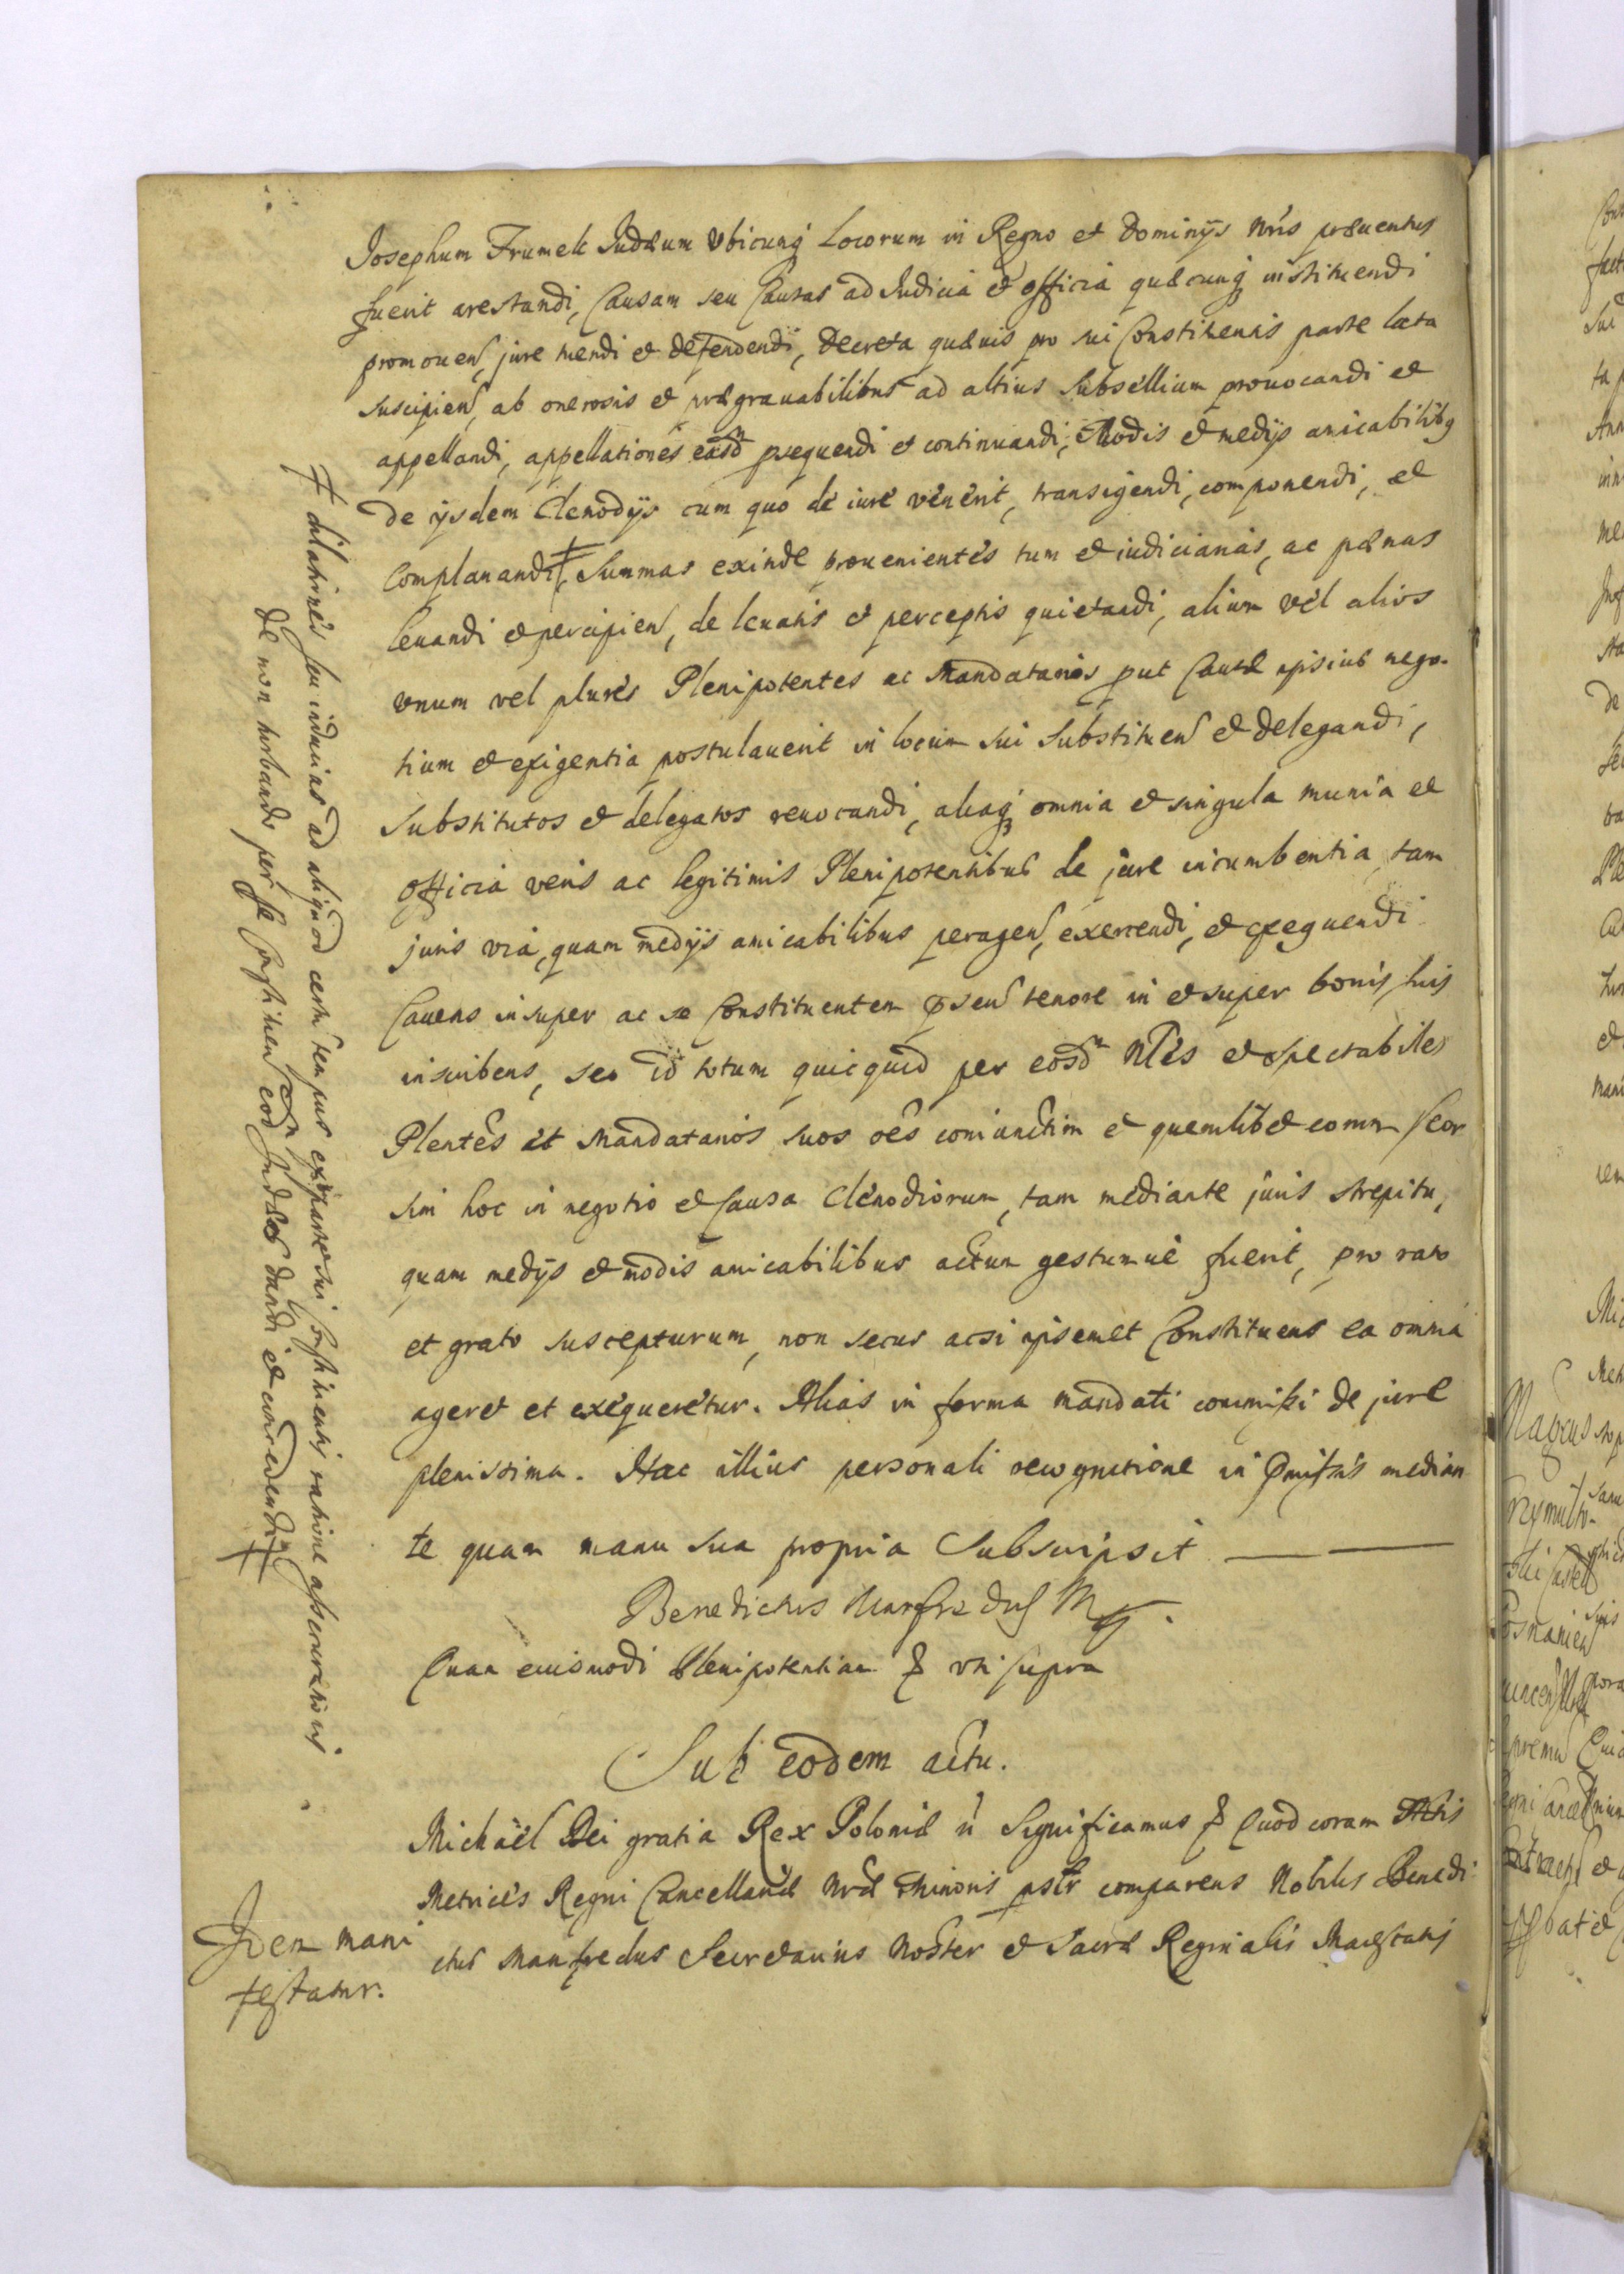 Josephum Frumek Judæum Vbicunq Locorum in Regno et Dominÿs Nris præuentus
fuerit arestandi, Causam seu Causas ad Judicia et officia quæcunq instituendi
promouen, jure tuendi et defendendi, Decreta quæuis pro sui Constituentis parte lata
suscipien, ab onerosis et prægrauabilibus ad altius Subsellium prouocandi et
appellandi, appellationes easdm psequendi et continuandi, Modis et medÿs amicabilibq
De ÿsdem Clenodÿs cum quo de iure venerit, transigendi, componendi, et
Complanandi ǂ, Summas exinde prouenientes tum et iudiciarias, ac pænas
leuandi et percipien, de leuatis et perceptis quietandi, alium vel alios
vnum vel plures Plenipotentes ac Mandatarios put Causæ ipsius nego-
tium et exigentia postulauerit in locum sui Substituen et delegandi,
Substitutos et delegatos reuocandi, aliaq omnia et singula munia et
officia veris ac legitimis Plenipotentibus de jure incumbentia, tam
juris via, quam medÿs amicabilibus peragen, exercendi, et exequendi
Cauens insuper ac se Constituentem pnsen tenore in et super bonis suis
inscribens, seo id totum quicquid per eosdm Nles et Spectabiles
Plentes et Mandatarios suos oes coniunctim et quemlibet eorum seor
sim hoc in negotio et Causa Clenodiorum, tam mediante juris strepitu,
quam medÿs et modis amicabilibus actum gestumue fuerit, pro rato
et grato suscepturum, non secus acsi ipsemet Constituens ea omnia
ageret et exequeretur. Alias in forma mandati commissi de jure
plenissima. Hac illius personali recognitione in præmissis median
te quam manu sua propria Subscripsit
Benedictus Manfredus Mp.
Quam euismodi Plenipotentiam & vti supra
ǂ dilationes seu inducias ad aliquod certu tempus ex parte sui Constituentis ratione asseruationis
de non turbando per se Constituen eod Judæo dandi et concedendi ǂ
Sub eodem actu.
Michaël Dei gratia Rex Poloniæ ū Significamus & Quod coram Actis
Metrices Regni Cancellariæ Nræ Minoris pslr comparens Nobilis Benedi
ctus Manfredus Secretarius Noster et Sacræ Reginalis Maiestatis
Idem mani
festatur.